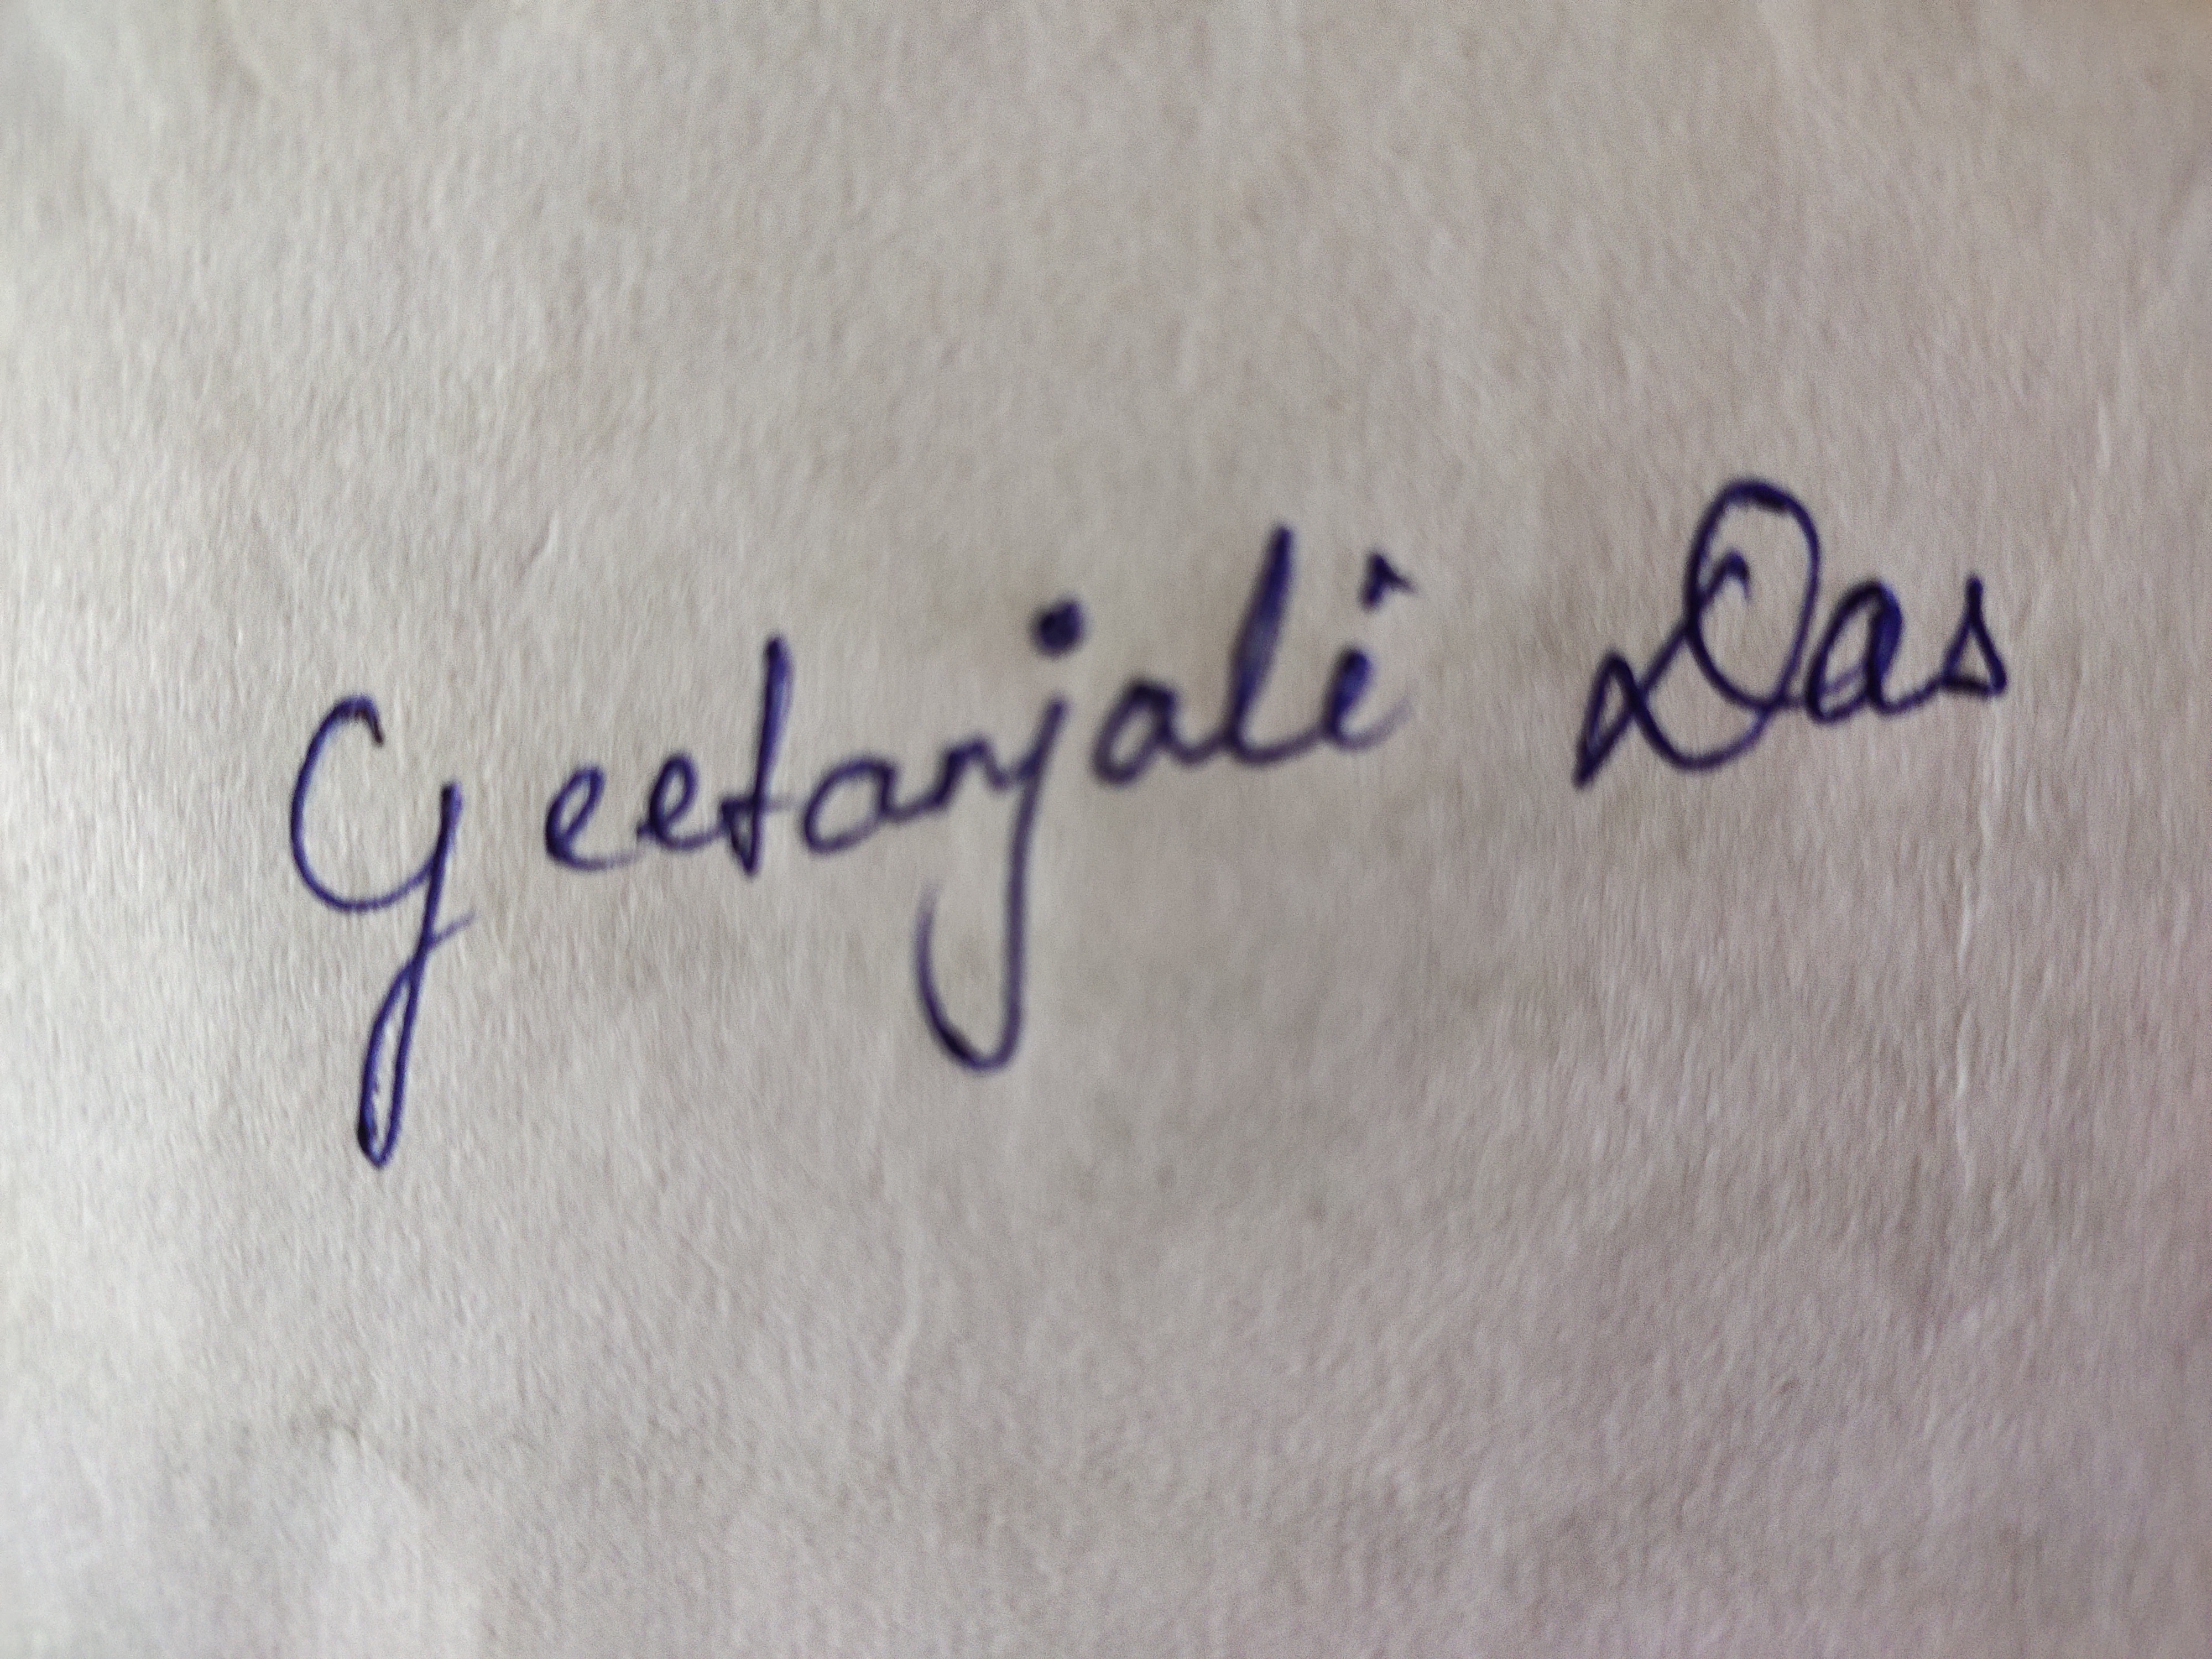 Geetanjali Das